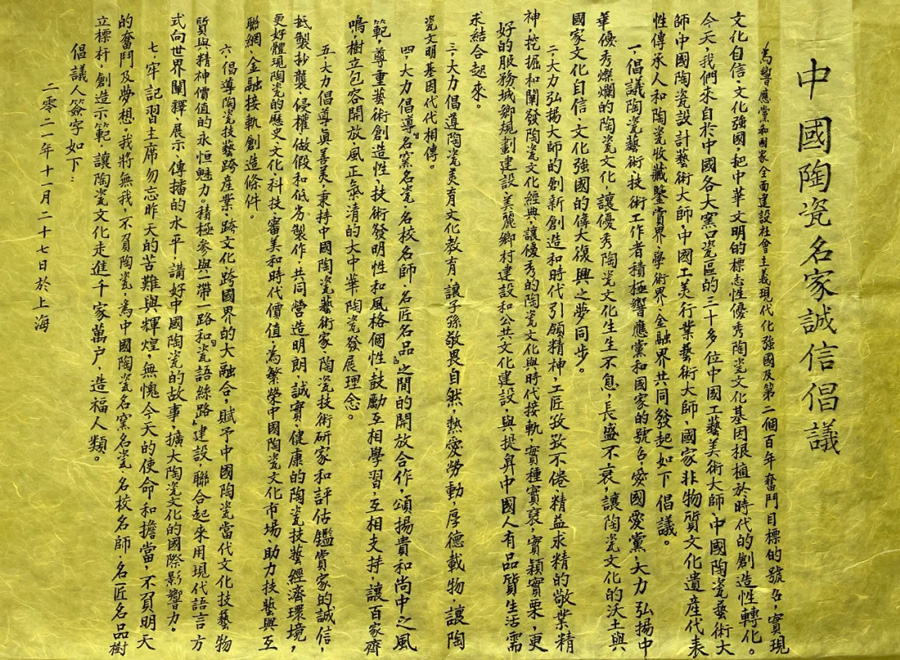 中國陶瓷名家誠信倡議
為響應黨和國家全面建設社會主義現代化強國及第二個百年奮鬥目標的號召，實現
文化自信，文化強國，把中華文明的標志性優秀陶瓷文化基因根植於時代的創造性轉化。
今天，我們來自於中國各大窯口瓷區的三十多位中國工藝美術大師，中國陶瓷藝術大
師，中國陶瓷設計藝術大師，中國工美行業藝術大師，國家非物質文化遺產代表
性傳承人和陶瓷收藏鑒賞界、學術界、金融界共同發起如下倡議。
一，倡議陶瓷藝術、技術工作者積極響應黨和國家的號召，愛國愛黨，大力弘揚中
華優秀燦爛的陶瓷文化，讓優秀陶瓷文化生生不息，長盛不衰，讓陶瓷文化的沃土與
國家文化自信，文化強國的偉大復興之夢同步。
二，大力弘揚大師的創新創造和時代引領精神，工匠孜孜不倦，精益求精的敬業精
神，挖掘和闡發陶瓷文化經典，讓優秀的陶瓷文化與時代接軌，實種實裦，實穎實栗，更
好的服務城鄉規劃建設，美麗鄉村建設和公共文化建設，與提昇中國人有品質生活，需
求結合起來。
三，大力倡進陶瓷美育文化教育，讓子孫敬畏自然，熱愛勞動，厚德載物，讓陶
瓷文明基因代代相傳。
四，大力倡導“名窯名瓷，名校名師，名匠名品”之間的開放合作，頌揚貴和尚中之風
範，尊重藝術創造性，技術發明性和風格個性，鼓勵互相學習，互相支持，讓百家齊
鳴，樹立包容開放，風正氣清的大中華陶瓷發展理念。
五，大力倡導真善美，秉持中國陶瓷藝術家，陶瓷技術研家和評估鑑賞家的誠信，
抵製抄襲、侵權、做假和低劣製作，共同營造明朗，誠實，健康的陶瓷技藝經濟環境，
更好體現陶瓷的歷史文化，科技，審美和時代價值，為繁榮中國陶瓷文化市場，助力技藝與互
聯網，金融接軌創造條件。
六，倡導陶瓷技藝跨產業，跨文化，跨國界的大融合，賦予中國陶瓷當代文化技藝物
質與精神價值的永恒魅力。積極參與“一帶一路”和“瓷語絲路”建設，聯合起來用現代語言方
式向世界闡釋，展示，傳播的水平，講好中國陶瓷的故事，擴大陶瓷文化的國際影響力。
七，牢記習主席“勿忘昨天的苦難與輝煌，無愧今天的使命和擔當，不負明天
的奮鬥及夢想，我將無我，不負陶瓷，為中國陶瓷名窯名瓷，名校名師，名匠名品樹
立標杆，創造示範，讓陶瓷文化走進千家萬户，造福人類。
倡議人簽字如下：
二零二一年十一月二十七日於上海